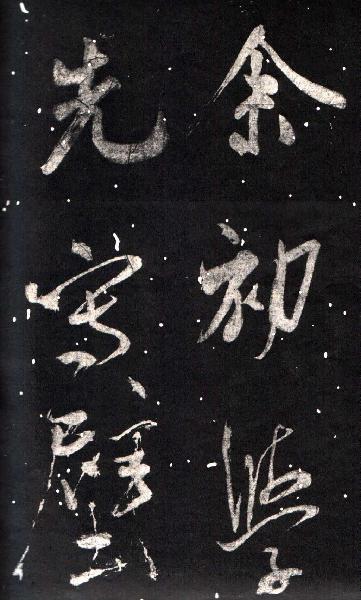 余初學
先寫壁